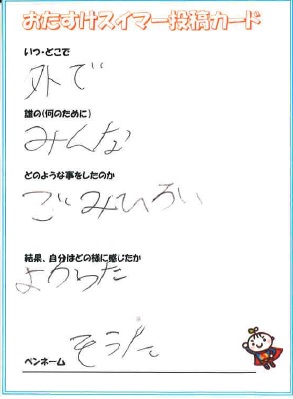 おたすけスイマー投稿カード
いつ・どこで
外で
誰の(何のために)
みんな
どのような事をしたのか
ごみひろい
結果、自分はどの様に感じたか
よかった
そうた
ペンネーム